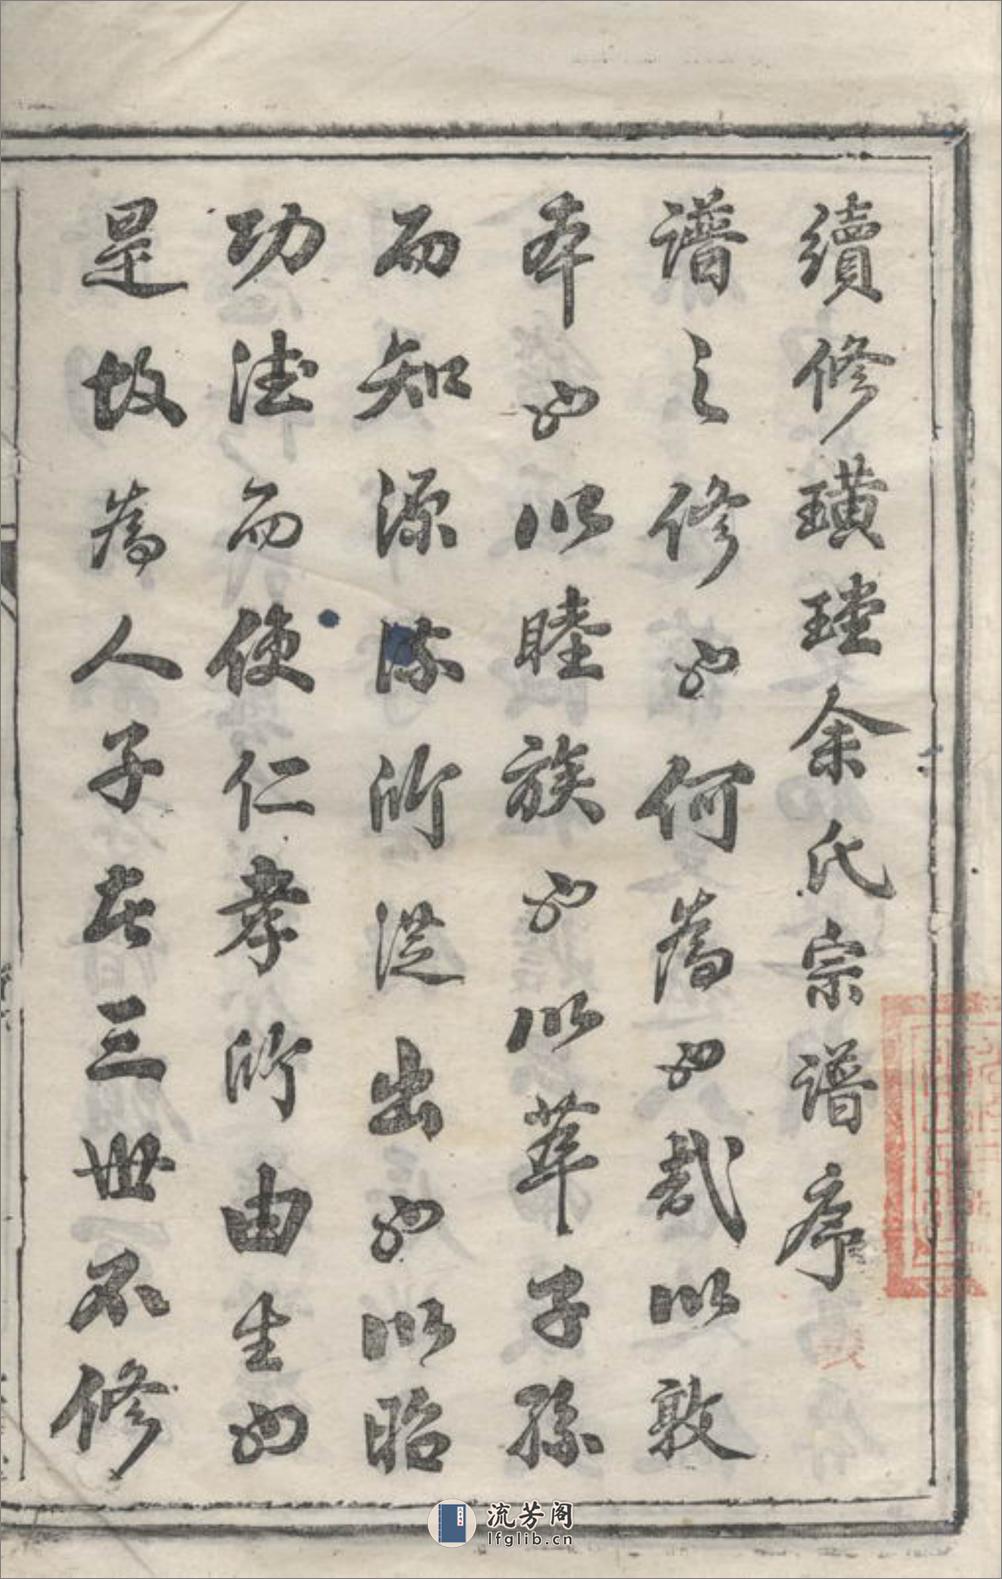 續修璜璴余氏宗譜序
譜之修也何為也哉以敦
本也以睦族也以萃子孫
而知源流所從出也以昭
功德而使仁孝所由生也
是故為人子者三世不修
流芳阁
lfglib.cn